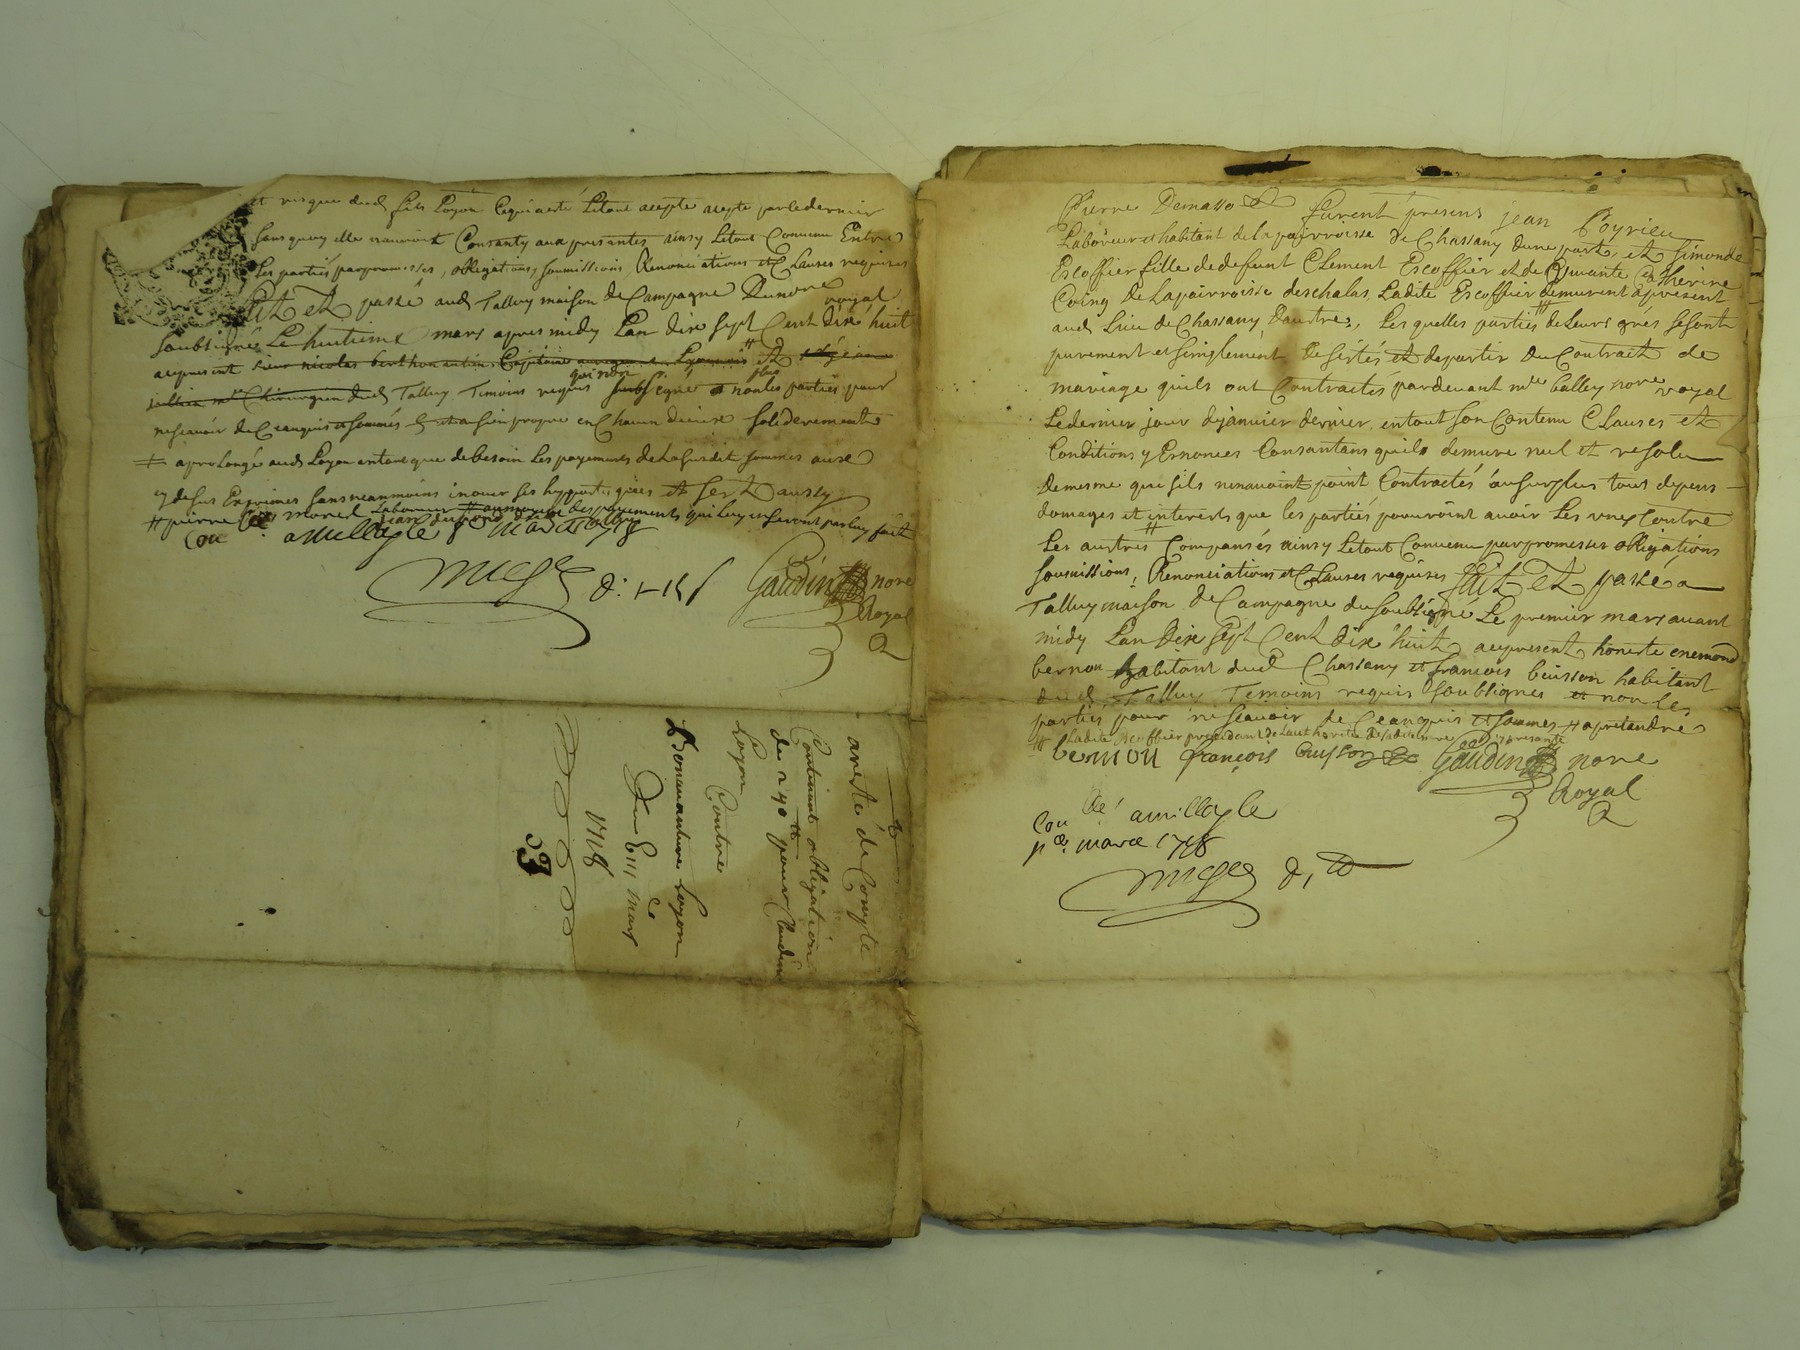 et risque dud fils Loyon Cequi aesté Letout acepté acepté par le dernier
sans quoy elle nauroit Consanty aux presantes ainsy Letout Convenu Entre
Les parties parpromesses, obligations, soumissions, Renonciations et Clauses requises
fait et passé aud Talluy maison de Campagne Dunore royal
soubsigné Le huitieme mars apres midy Lan dix sept Cent dix huit
aupresent sieur nicolas berthon antien Capitaine Lyonnois et
jullien mre Chirurgien dud Talluy Temoins requis soubsigné non les parties pour
ne scavoir de Ceanquis et sommés et ausien propre en Chacun dicuse solideremente
aprolongé aud Loyon entant que de besoin Les payements de La susdit sommes aux
cy desus Exprimes sans neanmoins inover ses hyppotegues et sert aussy
# pierre morel Laboureur # aumoyen des payements qui luy en seront par luy fait
Con llé amillayle 8e mars 1718
Gaudin nore
Royal
aresté de Compte
Contenant obligation
de 240 ll pour Claudine
Loyon
Contre
Bonnavanture Loyon
Du 8 mars
1718
39
Pierre Demasso furent presens jean Poyrieu
Laboureur et habitant de la pairroisse de Chassany dune part, et simonde
Escoffier fille de defunt Clement Escoffier et de vivante Catherine
Coing de Lapairroisse deschalas, Ladite Escoffier demurent apresent
aud Lieu de Chassany Dautre, Les quelles parties de Leurs grés se sont
purement et simplement desistés et departir du Contract de
mariage quils ont Contractés pardevant mre Galley nore royal
Le dernier jour de janvier dernier, entout son Contenu Clauses et
Conditions y Ennoncees Consantans quils demure nul et resolu
de mesme qui sils nenavoint point Contractés ausurplus tous depens
domages et interests que les parties pouvroint avoir Les unes Contre
Les austres Compansés ainsy Letout Convenu parpromesses obligations
soumissions, Renonciations et Clauses requises fait et passé a
Talluy maison de Campagne du soubsigné Le premier mars avant
midy Lan dix sept Cent dix huit aupresent honeste enemond
bernou habitant dud Chassany et francois buisson habitant
dud Talluy Temoins requis soubsignes et non les
parties pour ne scavoir de Ceanquis et sommes # apretandre
# Ladite Escoffier procedant de Lauthorité de sadite mere ycy presante
bernou françois buisson Gaudin nore
Royal
Con llé amillayle
per marce 1718